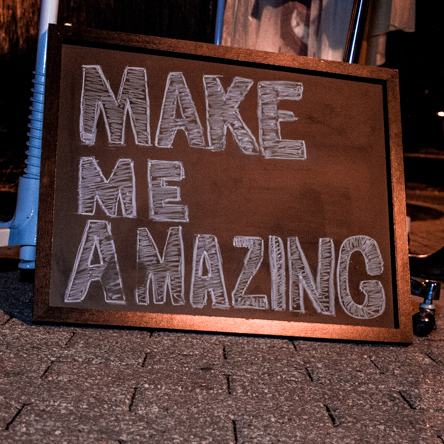 MAKE
ME
AMAZING